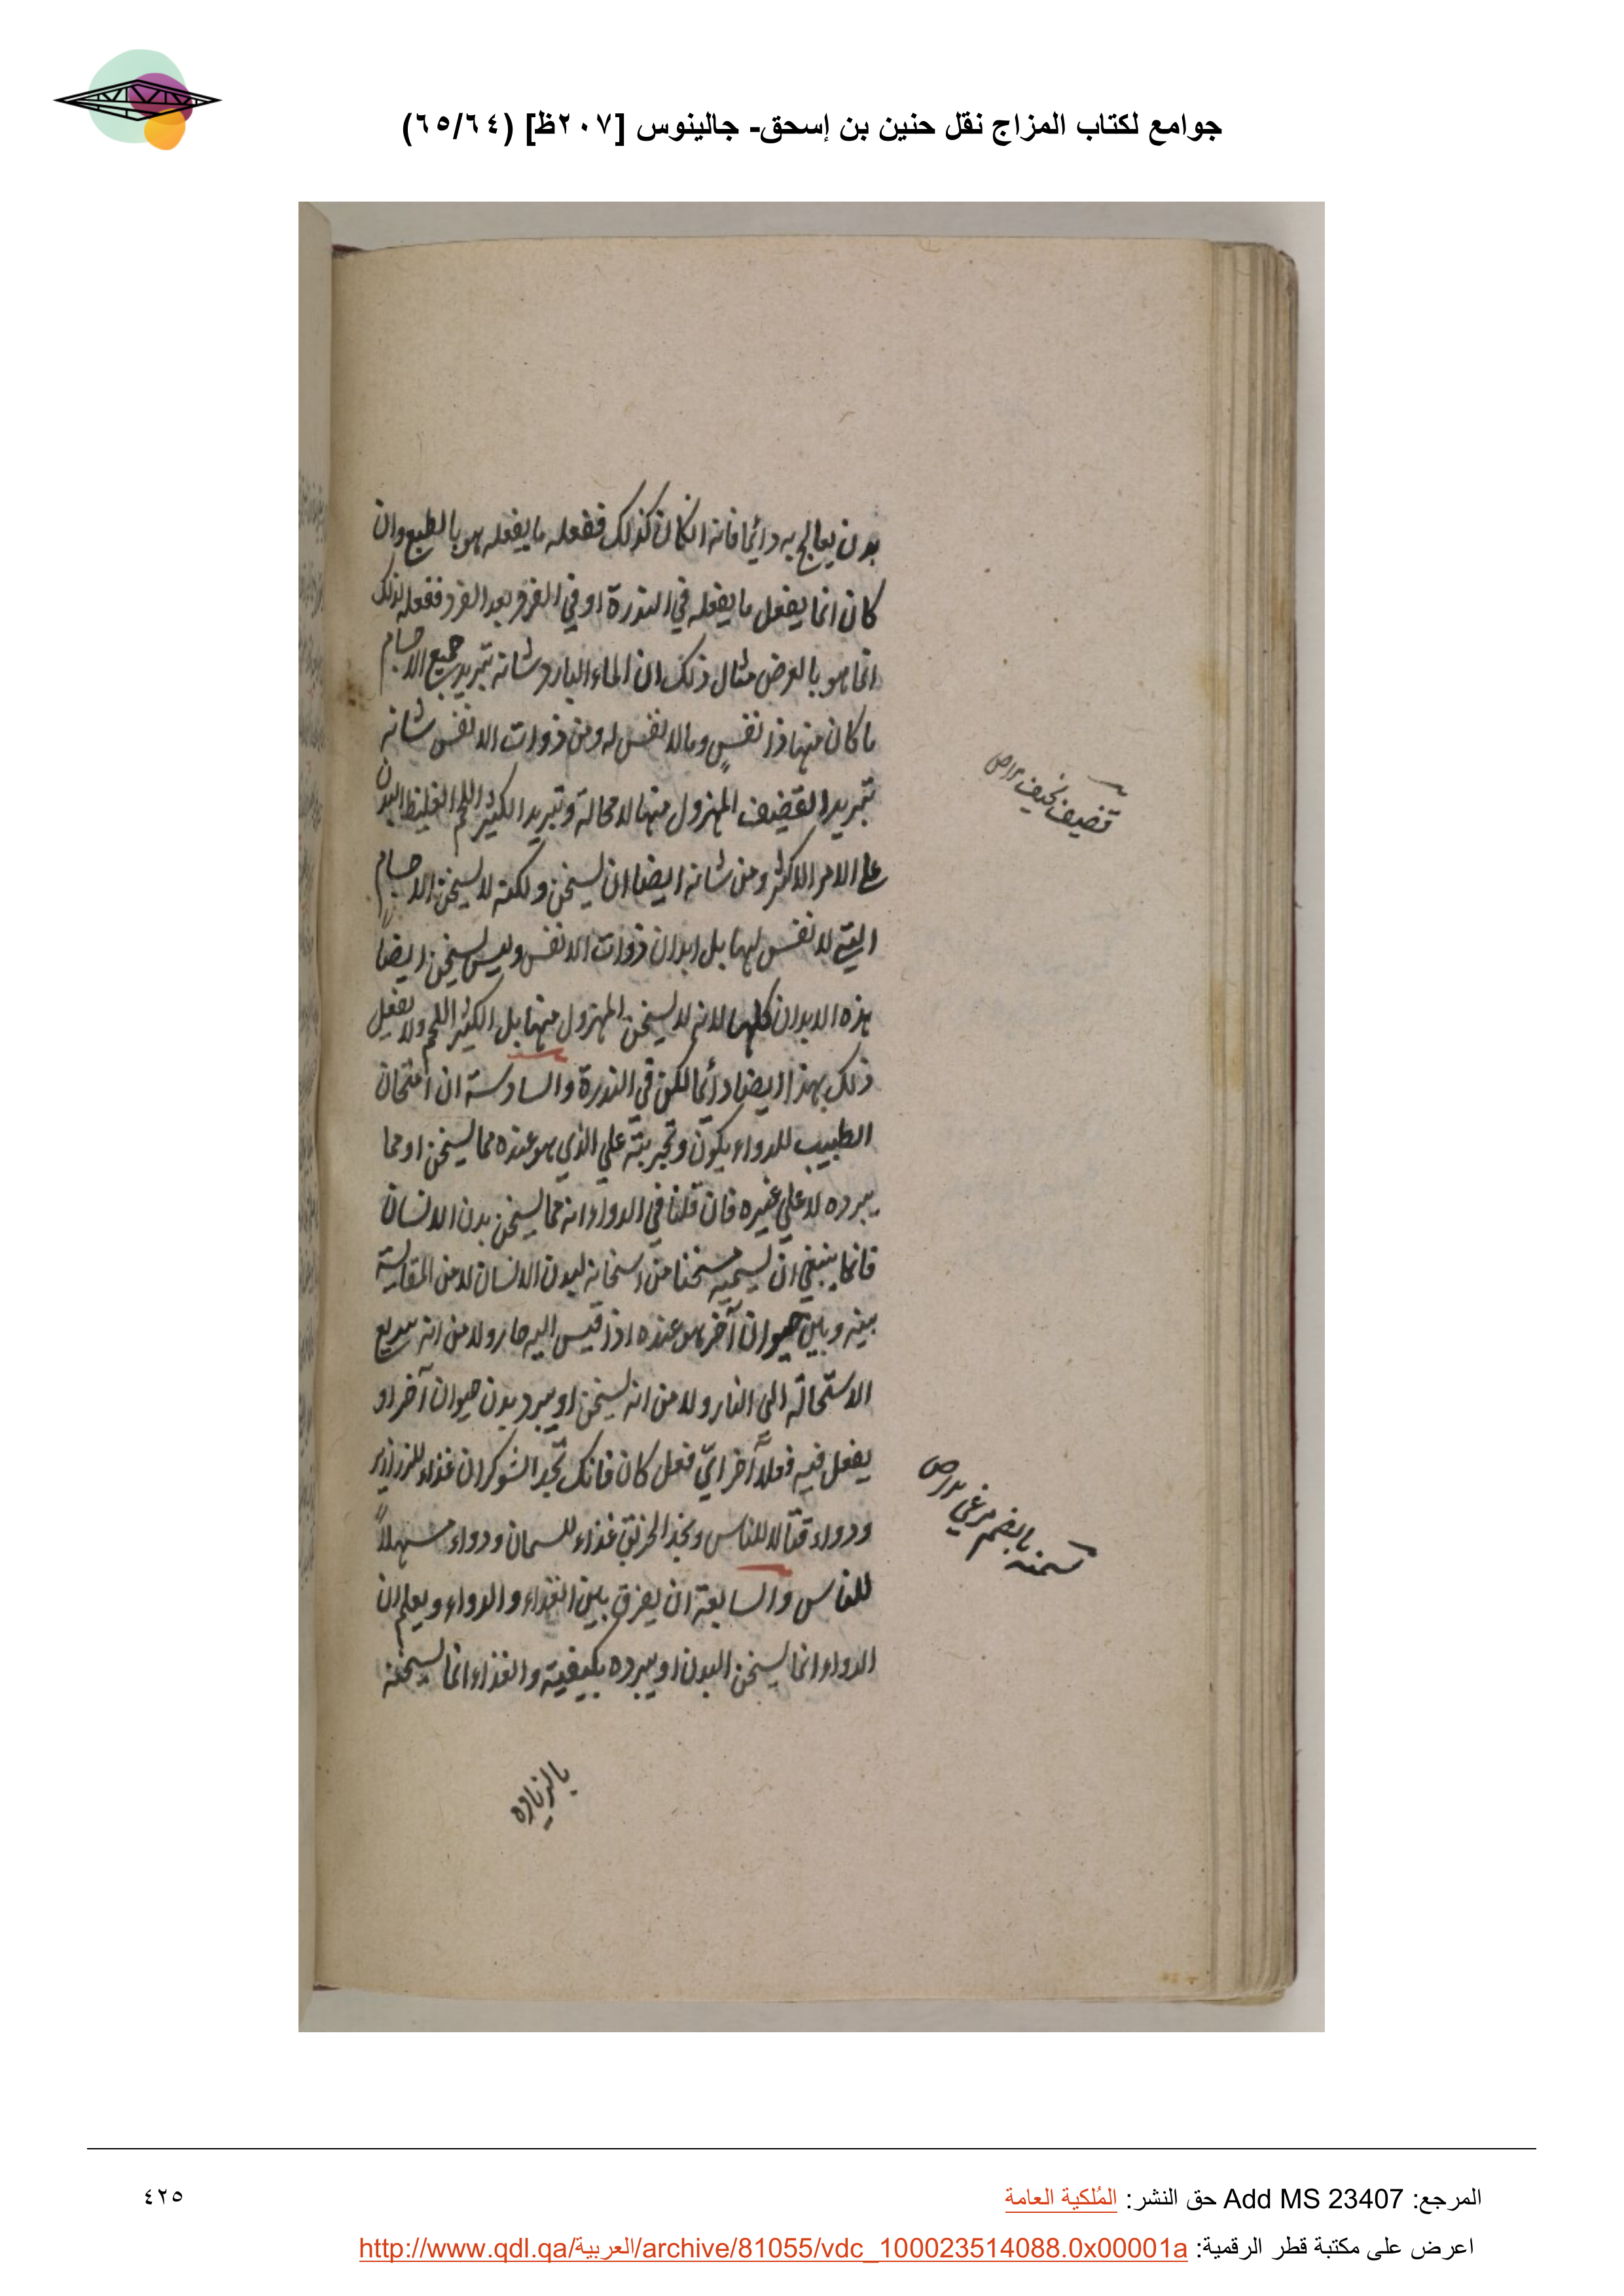 جوامع لكتاب المزاج نقل حنين بن إسحق- جالينوس [٢٠٧ظ] (٦٥/٦٤)
بدن يعالج به دائما فانه ان كان كذلك ففعله ما يفعله هو بالطبع وان
كان انما يفعل ما يفعله في الندرة او في الفرد بعد الفرد ففعله لذلك
انما هو بالعرض مثال ذلك ان الماء البارد شانه تبريد جميع الاجسام
ما كان منها ذا نفسٍ وما لا نفس له ومن ذوات الانفس شانه
تبريد القضيف المهزول منها لا محالة وتبريد الكثير اللحم الغليظ البدن
على الامر الاكثر ومن شانه ايضا ان يسخن ولكنه لا يسخن الاجسام
التي لا نفس لها بل ابدان ذوات الانفس وليس يسخن ايضاً
هذه الابدان كلها لانه لا يسخن المهزول منها بل الكثير اللحم ولا يفعل
ذلك بهذا ايضا دائما لكن في الندرة والسادسة ان امتحان
الطبيب للدواء يكون وتجربته علي الذي هو عنده مما يسخن او مما
يبرده لا علي غيره فان قلنا في الدواء انه مما يسخن بدن الانسان
فانما ينبغي ان يسميه مسخنا من اسخانه لبدن الانسان لا من المقايسة
بينه وبين حيوان آخر هو عنده اذا قيس اليه حار ولا من انه سريع
الاستحالة الي النار ولا من انه يسخن او يبرد بدن حيوان آخر او
يفعل فيه فعلاً آخر ايّ فعل كان فانك تجد الشوكران غذاء للزرازير
ودواء قتالا للناس وتجد الخربق غذاء للسمان ودواء مسهلاً
للناس والسابعة ان يفرق بين الغذاء والدواء ويعلم ان
الدواء انما يسخن البدن او يبرده بكيفيته والغذاء انما يسخنه
بالزيادة
قضيف نحيف صراح
سمنه بالضم مرغي صراح
المرجع: Add MS 23407 حق النشر: المُلكية العامة
٤٢٥
اعرض على مكتبة قطر الرقمية: http://www.qdl.qa/العربية/archive/81055/vdc_100023514088.0x00001a